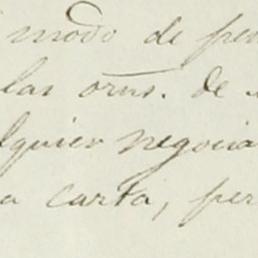 modo de pen
las orns. de
lquier negocia
a carta, per